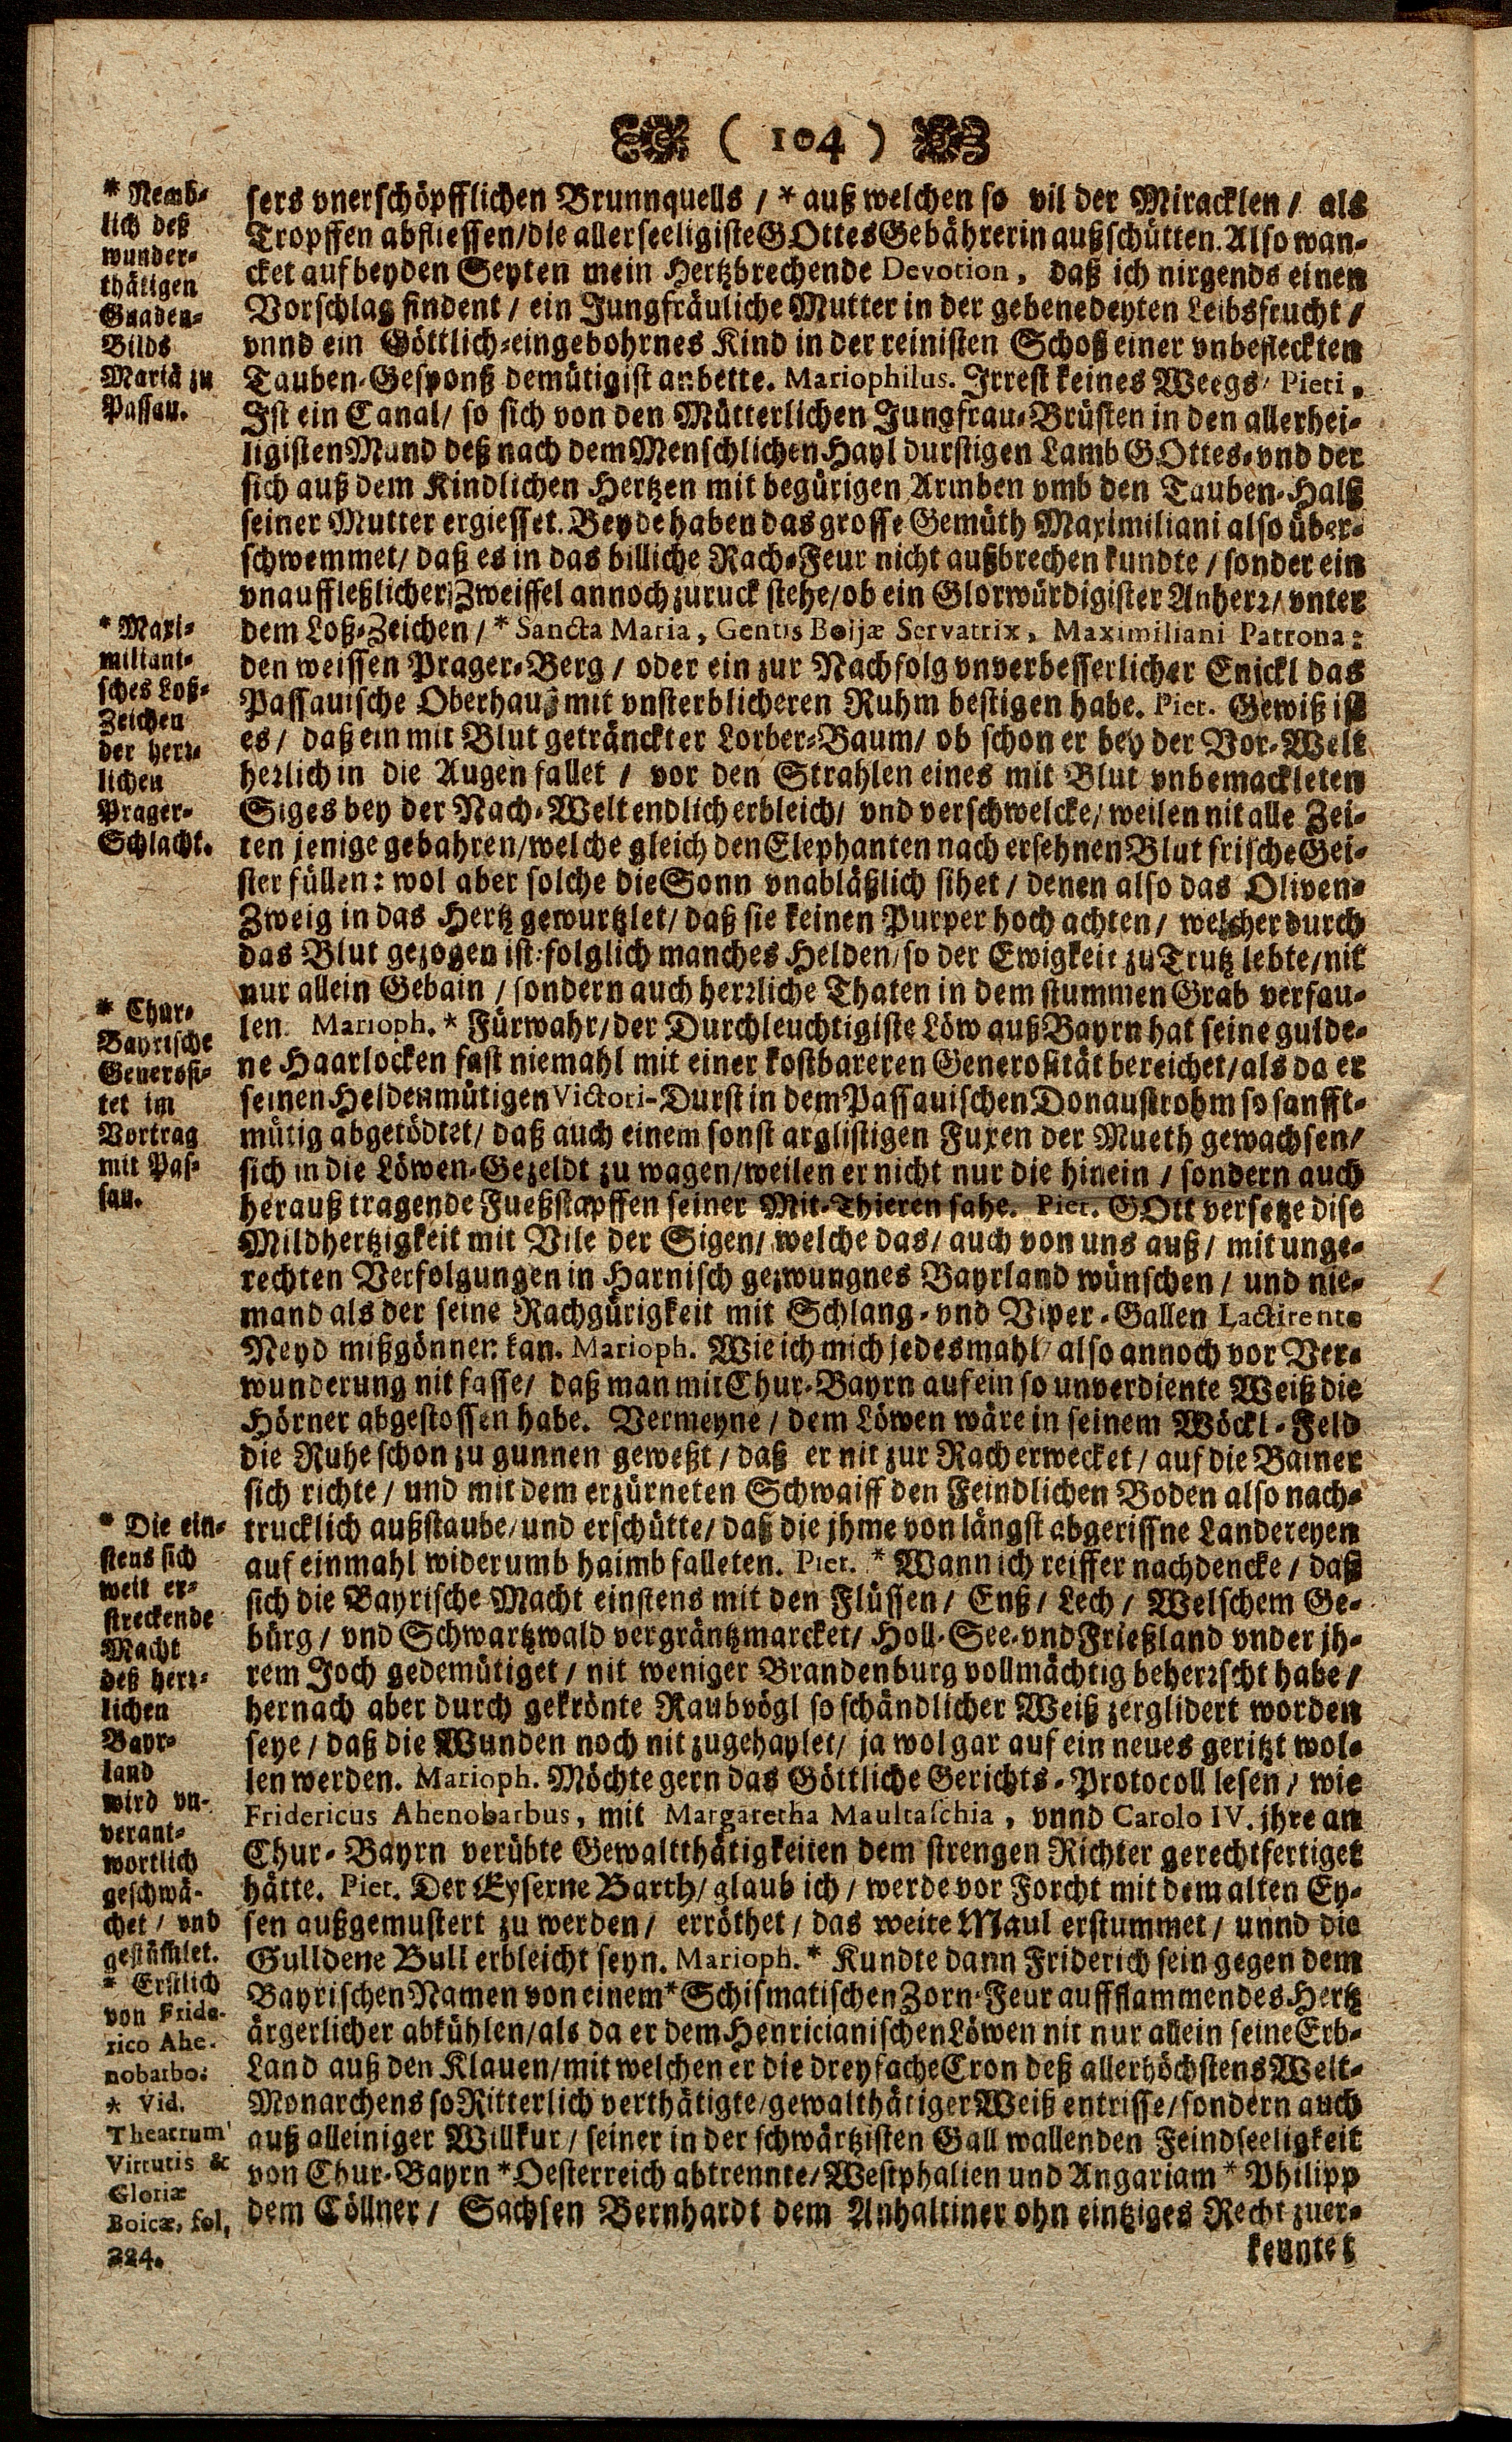 ( 104 )
* Nemb-
lich deß
wunder-
thätigen
Gnaden-
Bilds
Mariä zu
Passau.
sers vnerschöpfflichen Brunnquells / * auß welchen so vil der Miracklen / als
Tropffen abfliessen/die allerseeligiste GOttes Gebährerin außschütten. Also wan-
cket auf beyden Seyten mein Hertzbrechende Devotion, daß ich nirgends einen
Vorschlag findent / ein Jungfräuliche Mutter in der gebenedeyten Leibsfrucht /
vnnd ein Göttlich-eingebohrnes Kind in der reinisten Schoß einer vnbefleckten
Tauben-Gesponß demütigist anbette. Mariophilus. Irrest keines Weegs/ Pieti,
Ist ein Canal/ so sich von den Mütterlichen Jungfrau-Brüsten in den allerhei-
ligisten Mund deß nach dem Menschlichen Hayl durstigen Lamb GOttes-vnd der
sich auß dem Kindlichen Hertzen mit begürigen Armben vmb den Tauben-Halß
seiner Mutter ergiesset. Beyde haben das grosse Gemüth Maximiliani also über-
schwemmet/ daß es in das billiche Rach-Feur nicht außbrechen kundte / sonder ein
vnauffleßlicher Zweiffel annoch zuruck stehe/ob ein Glorwürdigister Anherr/ vnter
* Maxi-
miliani-
sches Loß-
Zeichen
der herr-
lichen
Prager-
Schlacht.
dem Loß-Zeichen / * Sancta Maria, Gentis Boijæ Servatrix, Maximiliani Patrona:
den weissen Prager-Berg / oder ein zur Nachfolg vnverbesserlicher Enickl das
Passauische Oberhauß mit vnsterblicheren Ruhm bestigen habe. Piet. Gewiß ist
es / daß ein mit Blut geträncter Lorber-Baum/ ob schon er bey der Vor-Welt
herlich in die Augen fallet / vor den Strahlen eines mit Blut vnbemackleten
Siges bey der Nach-Welt endlich erbleich/ vnd verschwelcke/ weilen nit alle Zei-
ten jenige gebahren/welche gleich den Elephanten nach ersehnen Blut frische Gei-
ster füllen: wol aber solche die Sonn vnabläßlich sihet / denen also das Oliven-
Zweig in das Hertz gewurtzlet/ daß sie keinen Purper hoch achten / welcher durch
das Blut gezogen ist: folglich manches Helden/ so der Ewigkeit zu Trutz lebte/nit
nur allein Gebain / sondern auch herrliche Thaten in dem stummen Grab verfau-
* Chur-
Bayrische
Generosi-
tet im
Vortrag
mit Pas-
sau.
len. Marioph. * Fürwahr/der Durchleuchtigiste Löw auß Bayrn hat seine gulde-
ne Haarlocken fast niemahl mit einer kostbareren Generosität bereichet/als da er
seinen Heldenmütigen Victori-Durst in dem Passauischen Donaustrohm so sanfft-
mütig abgetödtet/ daß auch einem sonst arglistigen Fuxen der Mueth gewachsen/
sich in die Löwen-Gezeldt zu wagen/weilen er nicht nur die hinein / sondern auch
herauß tragende Fueßstapffen seiner Mit-Thieren sahe. Piet. GOtt versetze dise
Mildhertzigkeit mit Vile der Sigen/ welche das/ auch von uns auß/ mit unge-
rechten Verfolgungen in Harnisch gezwungnes Bayrland wünschen / und nie-
mand als der seine Rachgürigkeit mit Schlang-vnd Viper-Gallen Lactirente
Neyd mißgönnen kan. Marioph. Wie ich mich jedesmahl/ also annoch vor Ver-
wunderung nit fasse/ daß man mit Chur-Bayrn auf ein so unverdiente Weiß die
Hörner abgestossen habe. Vermeyne / dem Löwen wäre in seinem Wöckl-Feld
die Ruhe schon zu gunnen geweßt / daß er nit zur Rach erwecket / auf die Bainer
sich richte / und mit dem erzürneten Schwaiff den Feindlichen Boden also nach-
* Die ein-
stens sich
weit er-
streckende
Macht
deß herr-
lichen
Bayr-
land
wird vn-
verant-
wortlich
geschwä-
chet / vnd
gestümlet.
trucklich außstaube/und erschütte/ daß die jhme von längst abgerissne Landereyen
auf einmahl widerumb haimb falleten. Piet. * Wann ich reiffer nachdencke / daß
sich die Bayrische Macht einstens mit den Flüssen/ Enß/ Lech / Welschem Ge-
bürg / vnd Schwartzwald vergräntzmarcket/ Holl-See-vnd Frießland vnder jh-
rem Joch gedemütiget / nit weniger Brandenburg vollmächtig beherrscht habe /
hernach aber durch gekrönte Raubvögl so schändlicher Weiß zerglidert worden
seye / daß die Wunden noch nit zugehaylet/ ja wol gar auf ein neues geritzt wol-
len werden. Marioph. Möchte gern das Göttliche Gerichts-Protocoll lesen / wie
Fridericus Ahenobarbus, mit Margaretha Maultaschia, vnnd Carolo IV. jhre an
Chur-Bayrn verübte Gewaltthätigkeiten dem strengen Richter gerechtfertiget
hätte. Piet. Der Eyserne Barth/ glaub ich / werde vor Forcht mit dem alten Ey-
sen außgemustert zu werden / erröthet / das weite Maul erstummet / unnd die
Gulldene Bull erbleicht seyn. Marioph. * Kundte dann Friderich sein gegen dem
* Erstlich
von Fride-
rico Ahe-
nobarbo.
* Vid.
Theatrum
Virtutis &
Gloriæ
Boicæ, fol,
224.
Bayrischen Namen von einem * Schismatischen Zorn-Feur auffflammendes Hertz
ärgerlicher abkühlen/als da er dem Henricianischen Löwen nit nur allein seine Erb-
Land auß den Klauen/mit welchen er die dreyfache Cron deß allerhöchstens Welt-
Monarchens so Ritterlich verthätigte/gewalthätiger Weiß entrisse/sondern auch
auß alleiniger Willkur / seiner in der schwärtzisten Gall wallenden Feindseeligkeit
von Chur-Bayrn * Oesterreich abtrennte/Westphalien und Angariam * Philipp
dem Cöllner / Sachsen Bernhardt dem Anhaltiner ohn eintziges Recht zuer-
kenntet